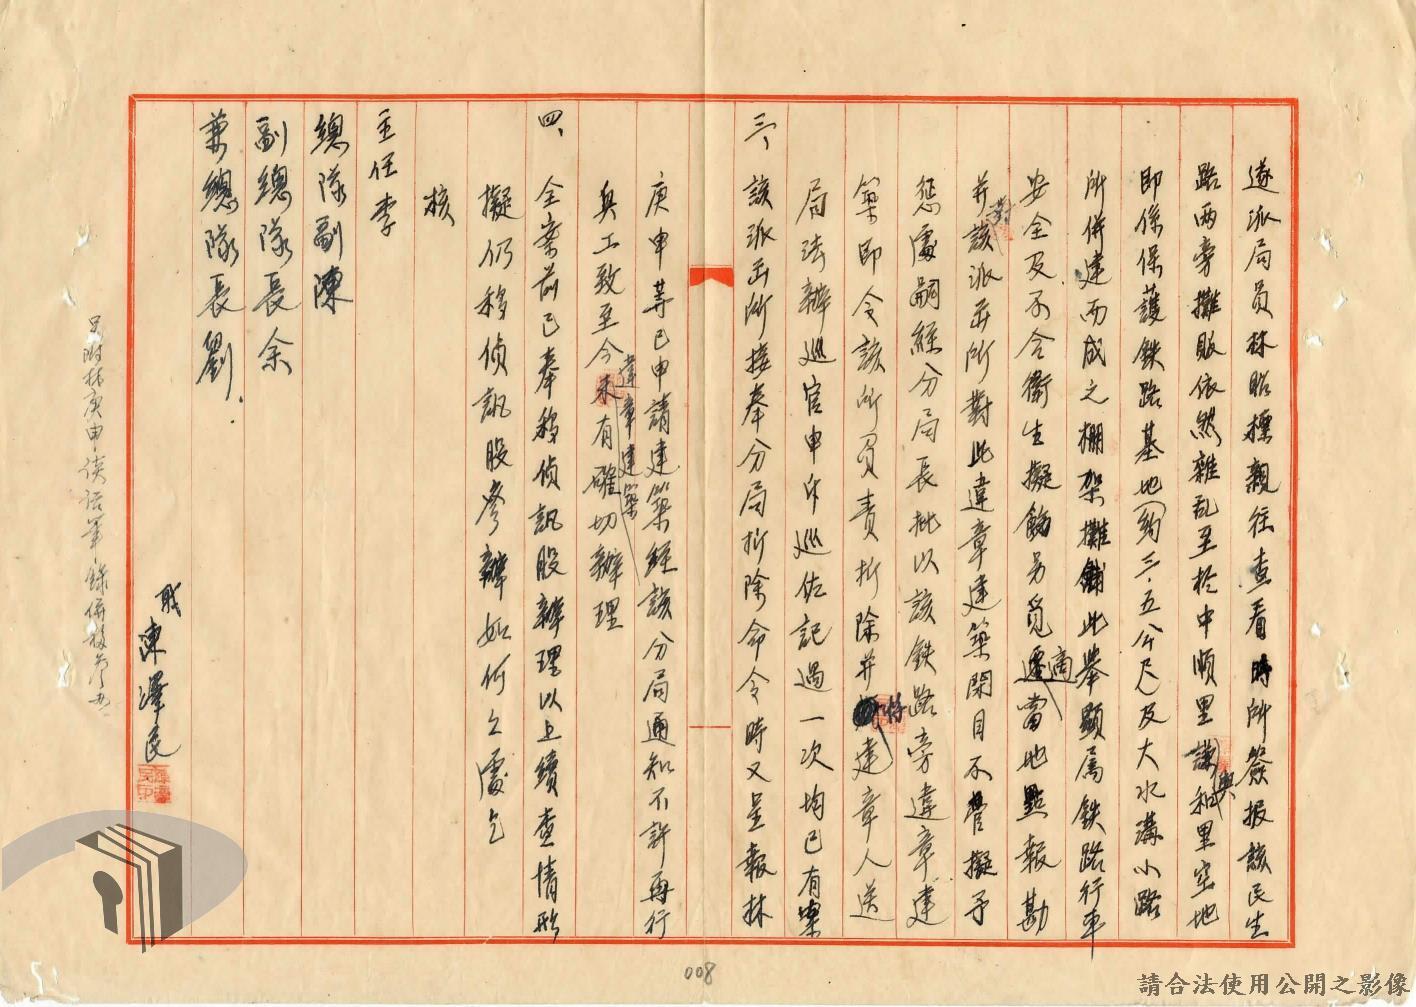 遂派局員林昭標親往查看時所簽报該民生
路两旁攤販依然雜乱至於中順里與謙和里空地
即係保護鉄路基地(約三.五公尺及大水溝小路
所併建而成之棚架攤舖此舉顯属鉄路行車
安全及不合衛生擬飭另覓適當地點報勘
并對該派出所對此違章建築閉目不管擬予
懲處嗣經分局長批以該鉄路旁違章建
築即令該所負責拆除并將違章人送
局法辦巡官申斥巡佐記過一次均已有案
三、該派出所接奉分局拆除命令時又呈報林
庚申等已申請建築經該分局通知不許再行
違章建築
興工致至今未有確切辦理
四、全案前已奉移偵訊股辦理以上續查情形
擬仍移偵訊股參辦如何之處乞
核
主任李
總隊副陳
副總隊長余
兼總隊長劉
另附林庚申談話筆錄併移參考
職陳澤民
008
請合法使用公開之影像